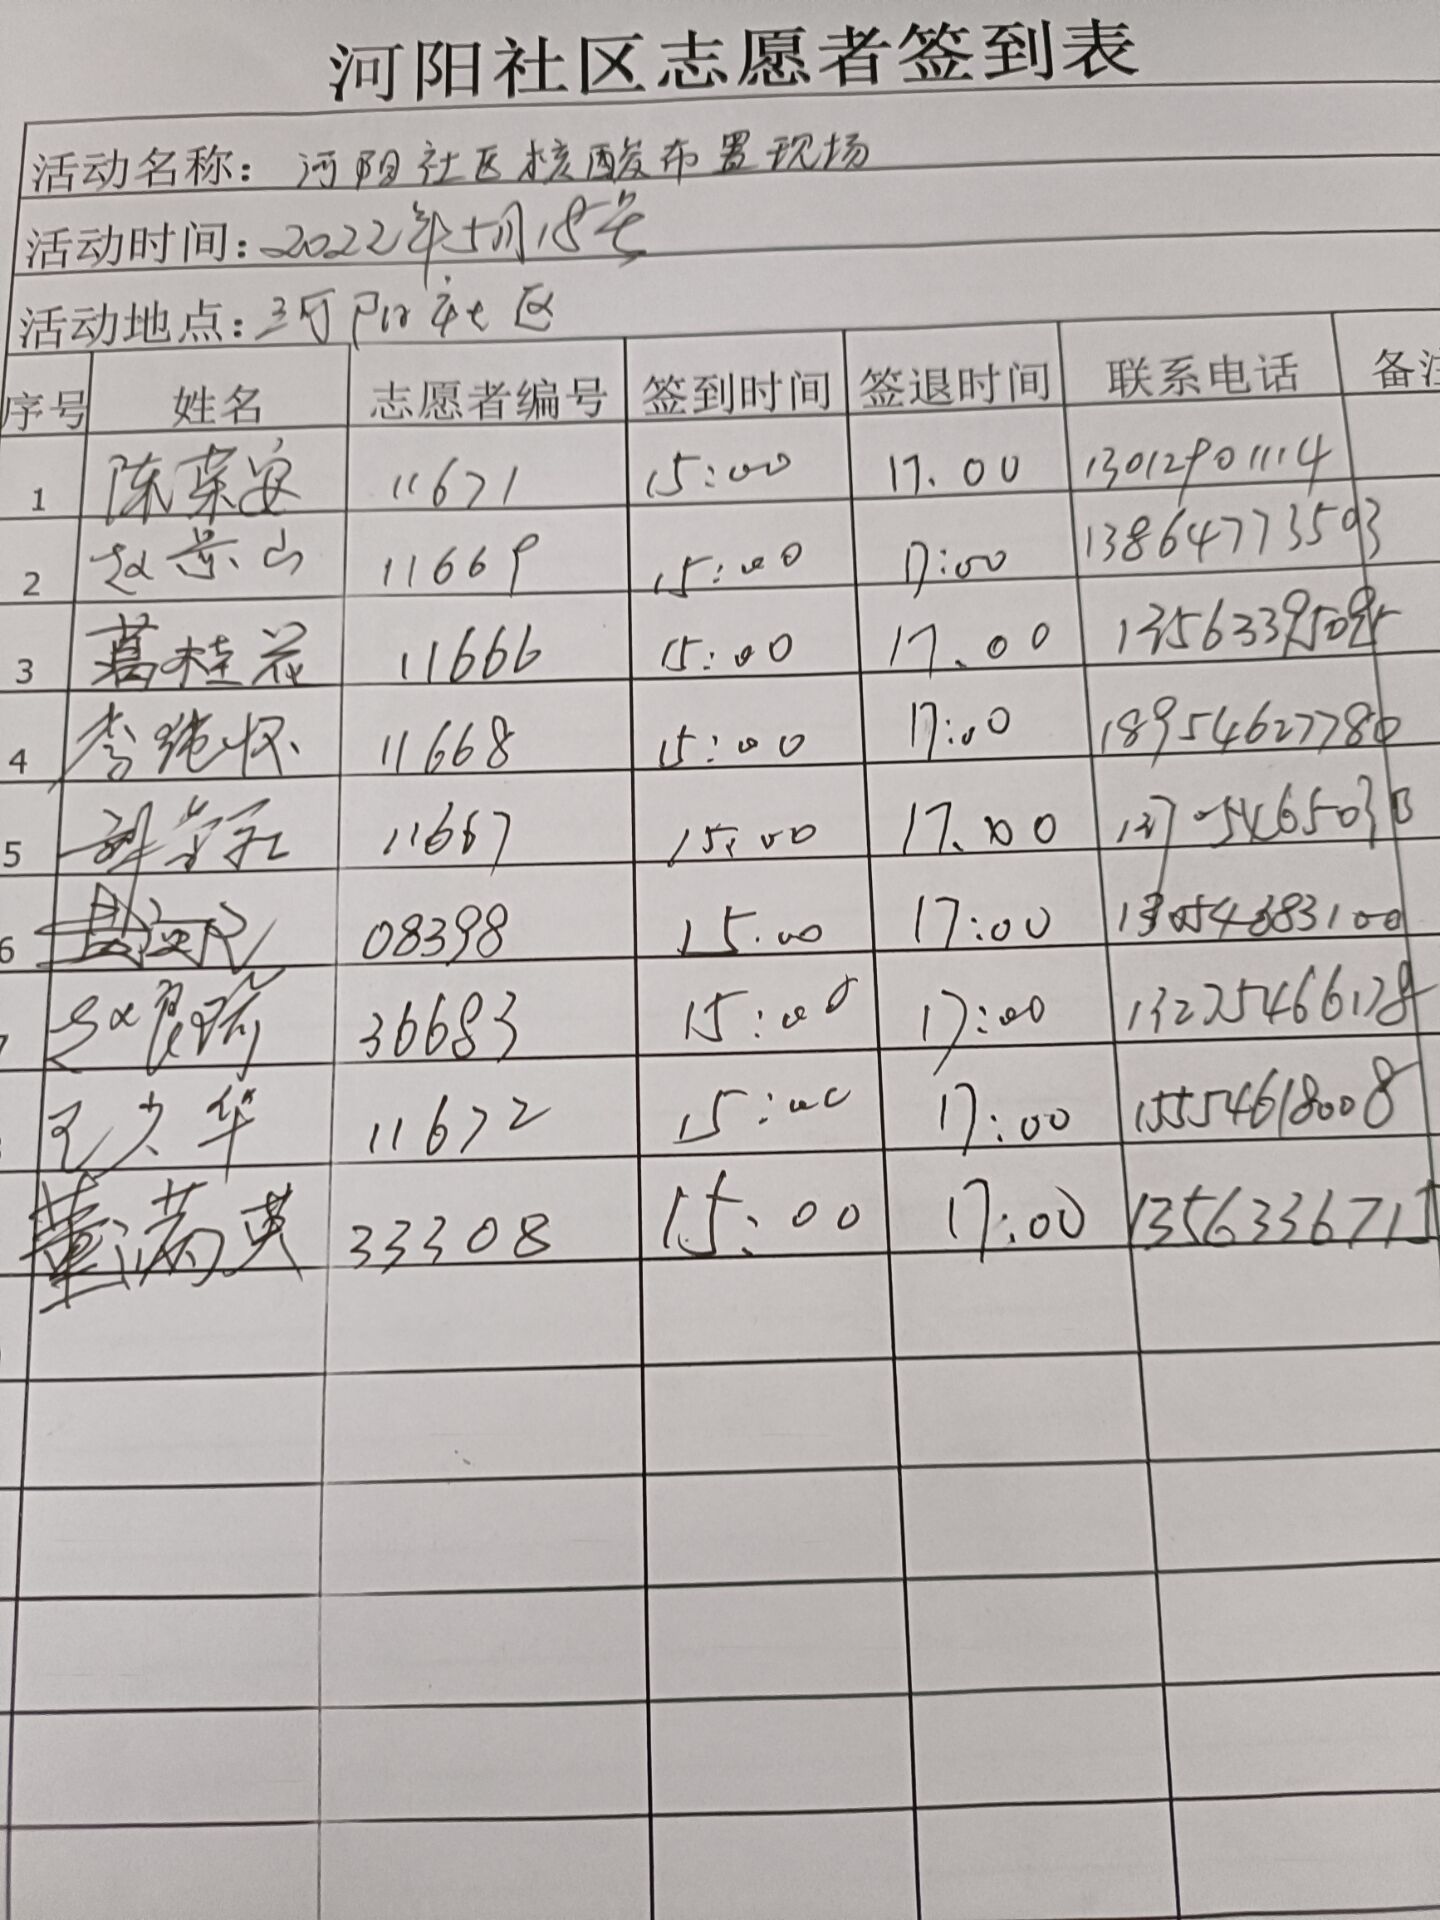 河阳社区志愿者签到表
活动名称：河阳社区核酸布置现场
活动时间：2022年5月18号
活动地点：河阳社区
序号 姓名 志愿者编号 签到时间 签退时间 联系电话 备注
1 陈荣安 11671 15:00 17.00 13012901114
2 赵景山 11669 15:00 17:00 13864773503
3 葛桂花 11666 15:00 17.00 13563395095
4 李纯怀 11668 15:00 17:00 18954627780
5 11667 15:00 17.00
6 08398 15:00 17:00 13054383100
7 赵 36683 15:00 17:00
王少华 11672 15:00 17:00 15554618008
董满英 33308 15:00 17:00 1356336715